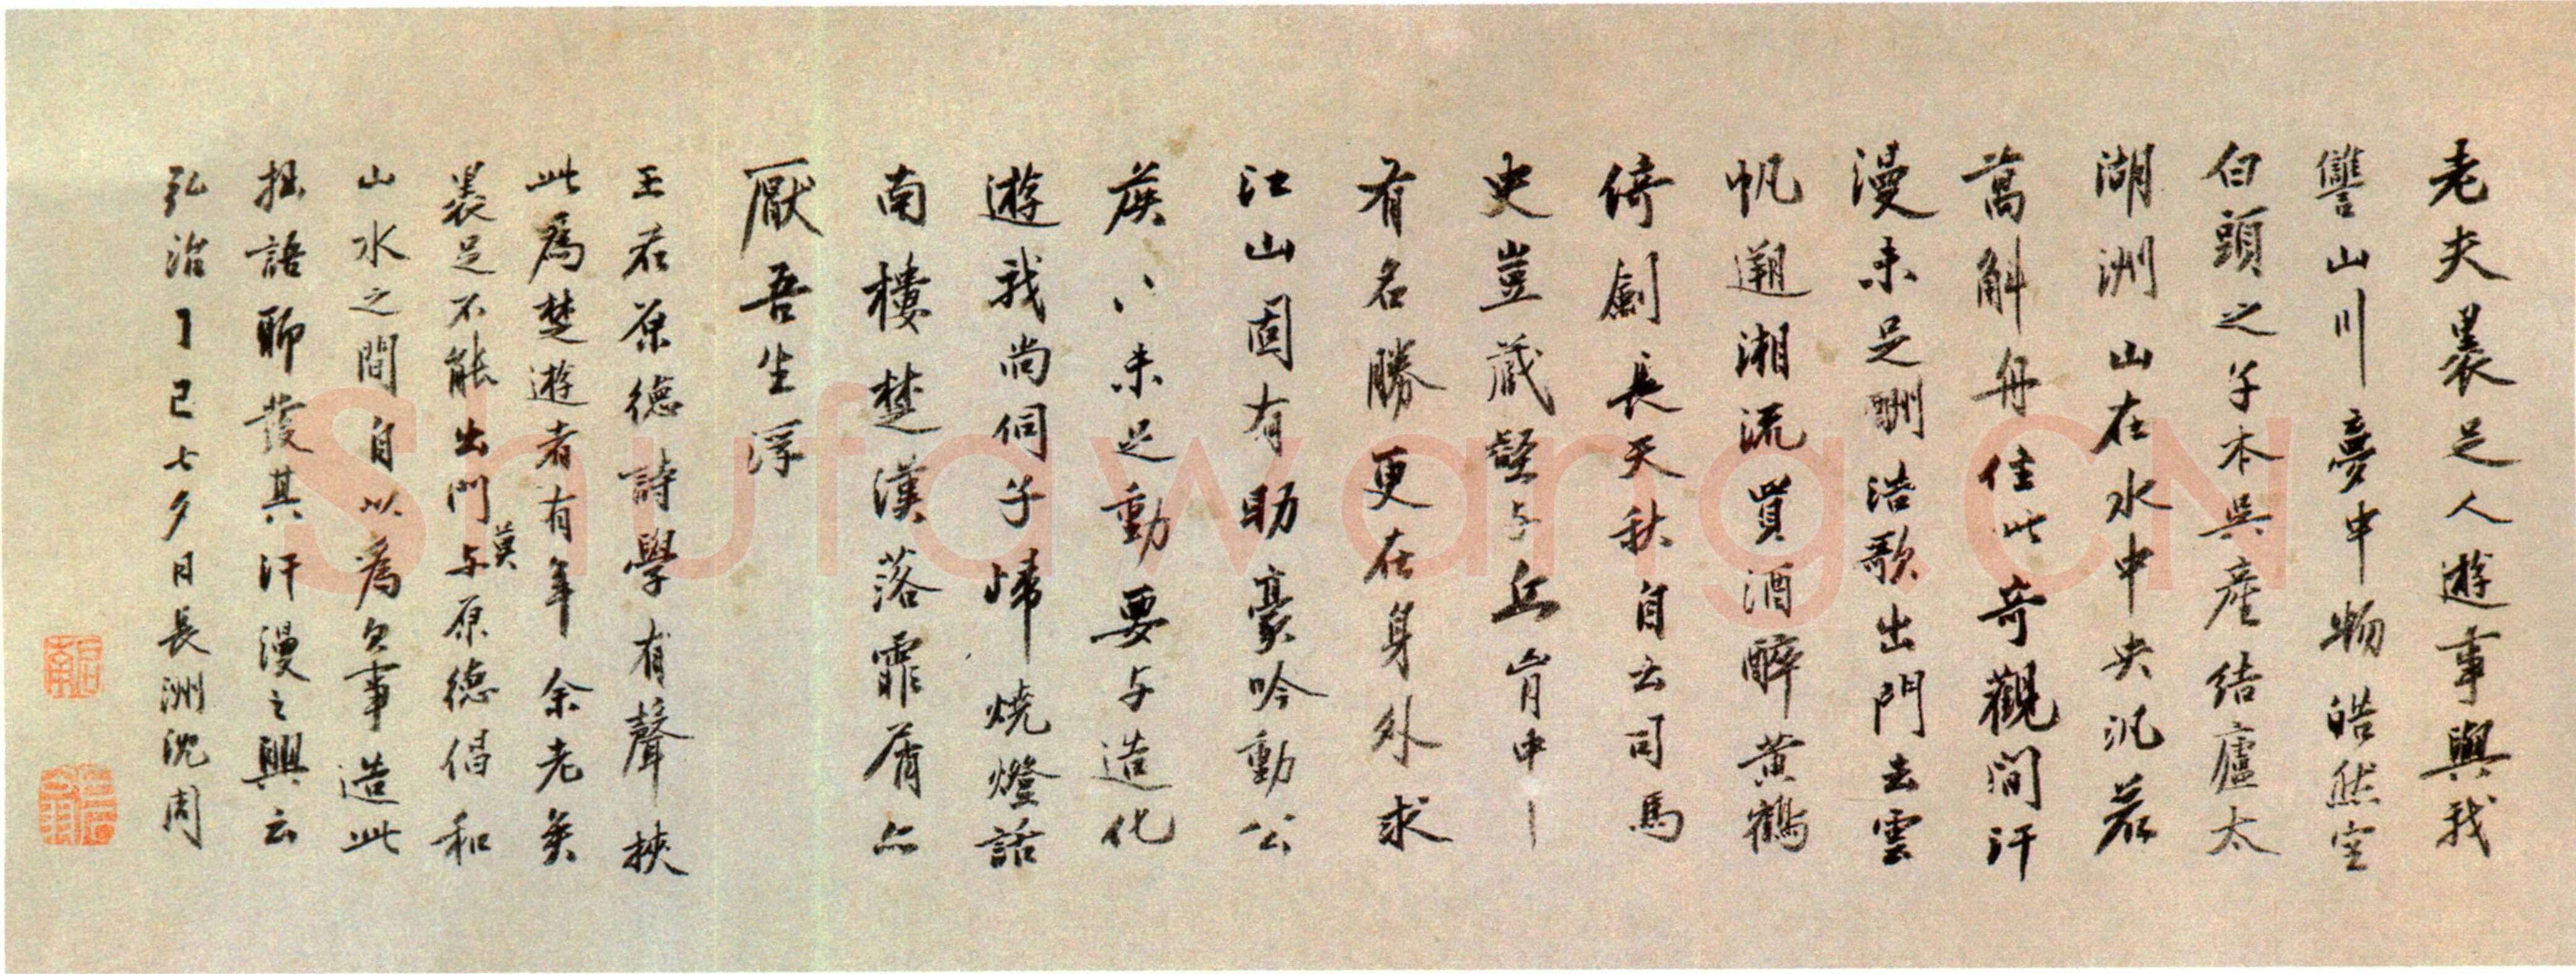 老夫裹足人遊事與我
讐山川夢中物皓然空
白頭之子本吳產結廬太
湖洲山在水中央汎若
萬斛舟住此奇觀間汗
漫未足酬浩歌出門去雲
帆遡湘流買酒醉黃鶴
倚劍長天秋自云司馬
史豈藏壑与丘肯中
有名勝更在身外求
江山固有助豪吟動公
侯〻未足動要与造化
遊我尚伺子歸燒燈話
南樓楚漢落霏屑亦
厭吾生浮
王君原德詩學有聲挾
此為楚遊者有年余老矣
裹足不能出門莫与原德倡和
山水之間自以為欠事造此
拙語聊發其汗漫之興云
弘治丁巳七夕日長洲沈周
Shufawang.CN